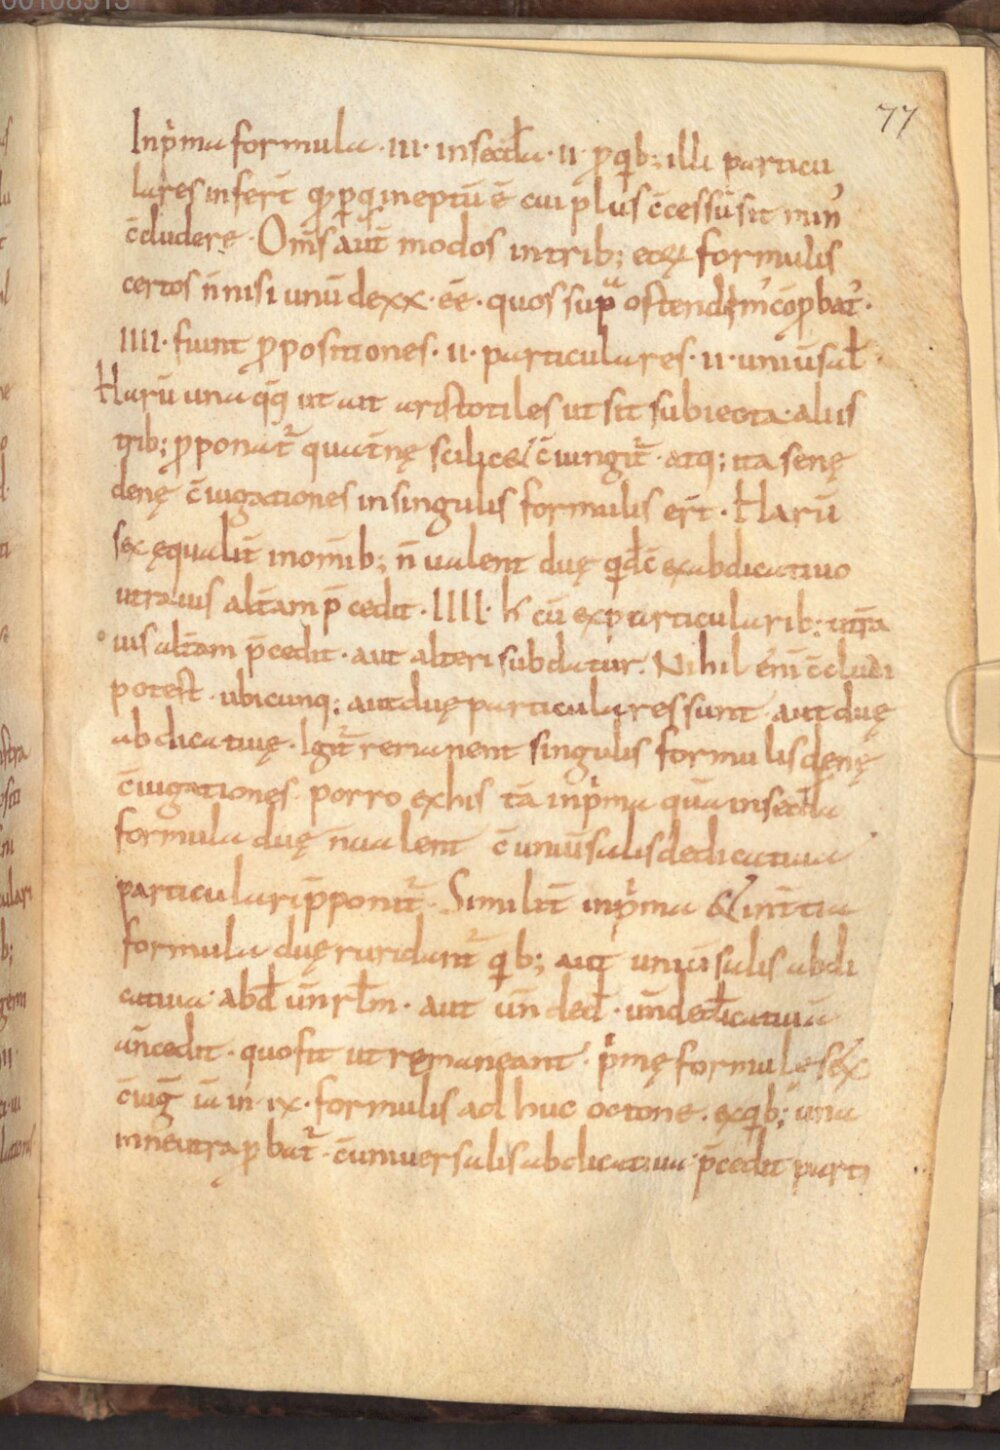 00108515
77
Inp̾ma formula · III · insecd̄a · II · ꝓ qib; illi particu
lares infert̄ qđ ꝑq̃ ineptū ē cui plus c̄cessū sit min᾽
c̄cludere . Om̄s aut̄ modos intrib; formulis
certos n̄nisi unū dexx · ēē · quos sup̄
IIII · fiunt ꝓpositiones · II · particulares · II · uniūsal̄
Harū una q̄q; ut ait aristotiles ut sit subiecta aliis
trib; ꝓponat̃ quat̄nę scilicet c̄iungit̃ · atq; ita senę
denę c̄iugationes insingulis formulis ert̄ · Harū
sex ęqualit̄ inomīb; n̄ualent duę q̄ exabdicatiuo
utrauis alt̄am p̄cedit · IIII · cū exparticularib; utra
uis alt̄am p̄cedit · aut alteri subdatur . Nihil enī c̄cludi
potest · ubicunq; aut duę particulares sunt aut duę
abdicatiuę · Igit̃ remanent singulis formulis denę
c̄iugationes · porro exhis tā inp̾ma quā insecd̄a
formula duę n̄ualent c̄ uniūsalis dedicatiua
particulari p̄ponit̃ · Similit̄ inp̾ma & int̄tia
formula duę ruridant̃ qib; aut uniūsalis abdi
catiua · abd̄ un̄ · aut un̄ ded̄ · un̄dedicatiuā
an̄cedit · quofit ut remaneant · p̾mę formulę sex
c̄iuḡ iā in · IX · formulis ad huc octone · exqib; una
inneutra ꝓbat̃ · c̄ uniuersalis abdicatiua p̄cedit parti